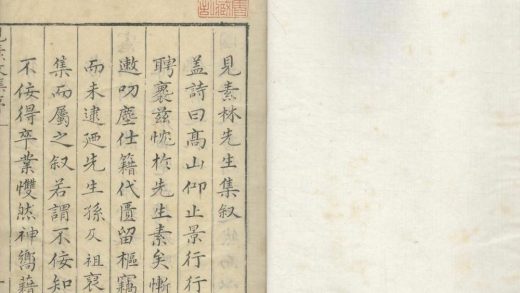 見素林先生集叙
盖詩曰高山仰止景行行
聘褱兹忱於先生素矣慚
遨叨塵仕籍代匱留樞竊
而未逮廼先生孫及祖裒
集而屬之叙若謂不佞知
不佞得卒業戄然神嚮藉
見素文集